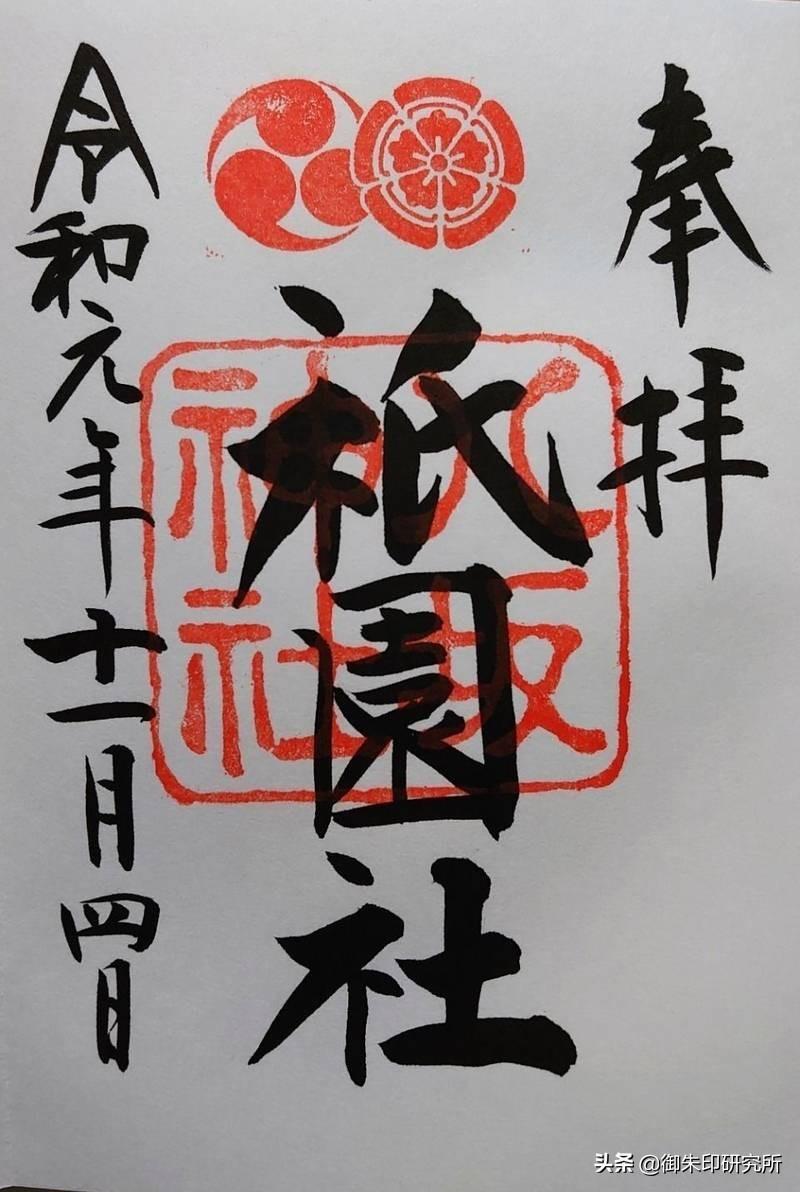 奉拝
祇園社
八坂
神社
令和元年十一月四日
头条 @御朱印研究所